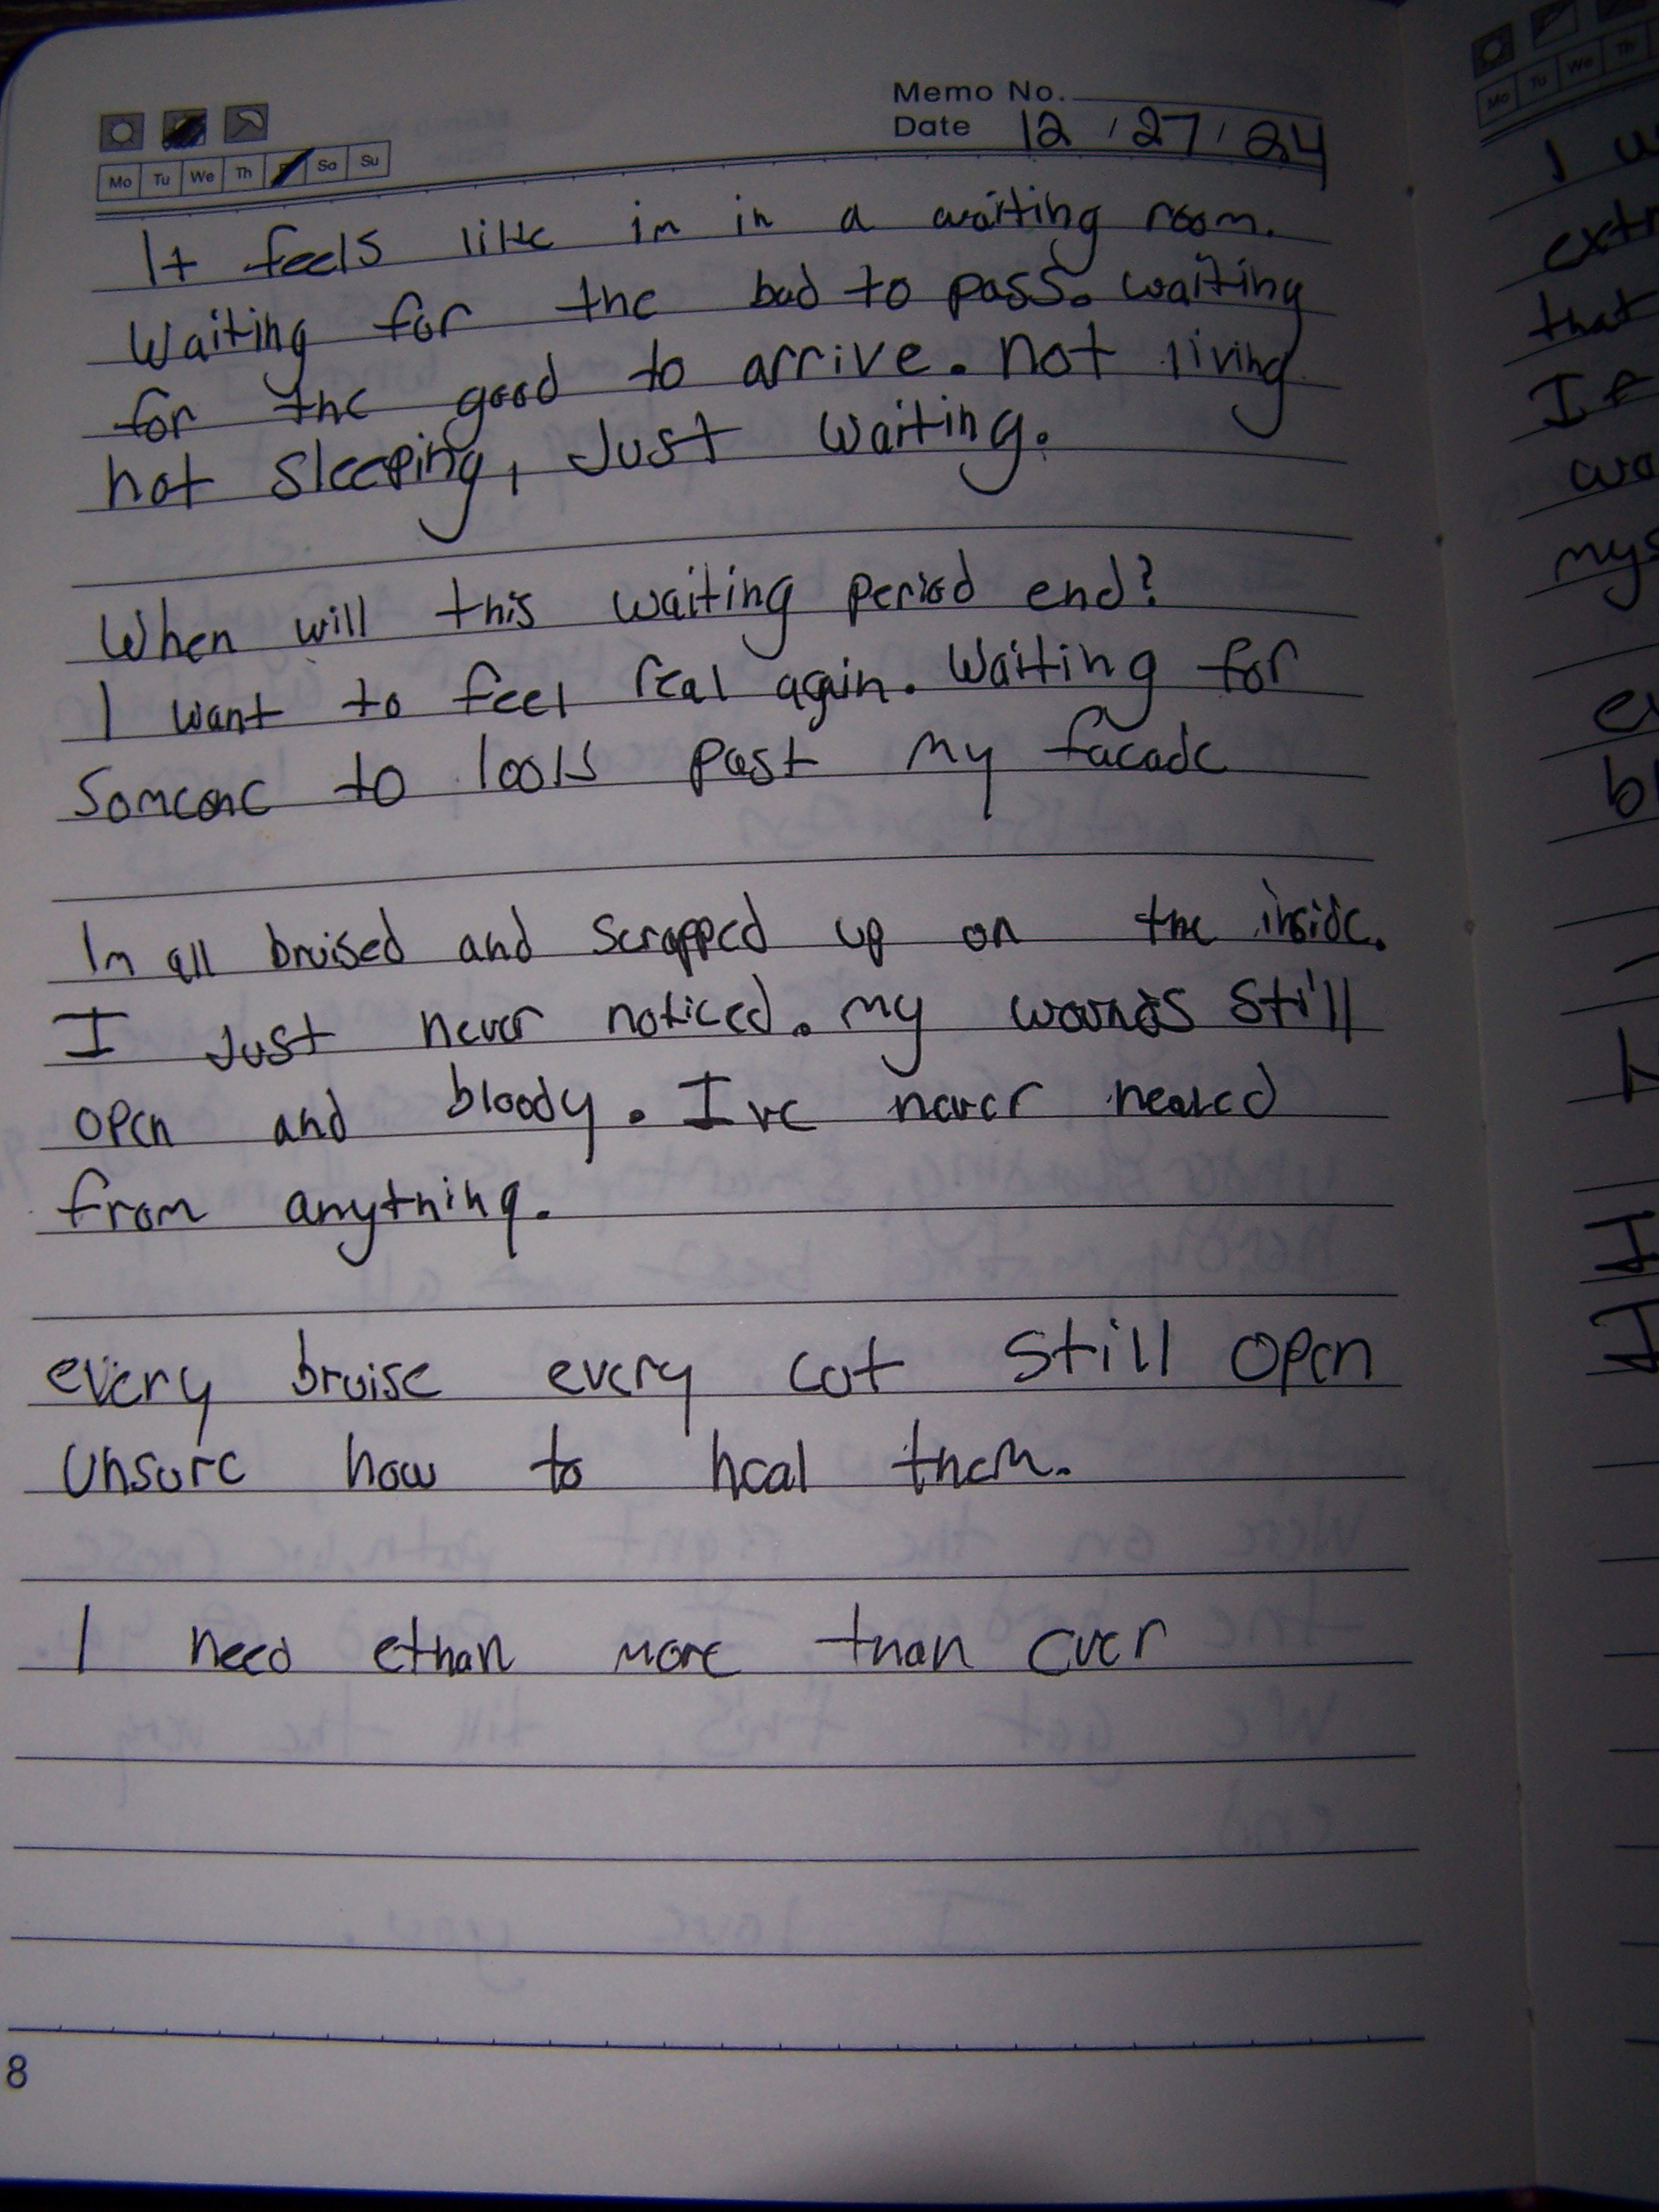 Memo No.
Date 12 / 27 / 24
Mo Tu We Th Sa Su
It feels like im in a waiting room.
Waiting for the bad to pass. waiting
for the good to arrive. not living
not sleeping, Just waiting.
When will this waiting period end?
I want to feel real again. Waiting for
Someone to look past my facade
Im all bruised and scrapped up on the inside.
I Just never noticed. my wounds still
open and bloody. Ive never healed
from anything.
every bruise every cut still open
Unsure how to heal them.
I need ethan more than ever
8
Mo Tu We Th
I
that
b